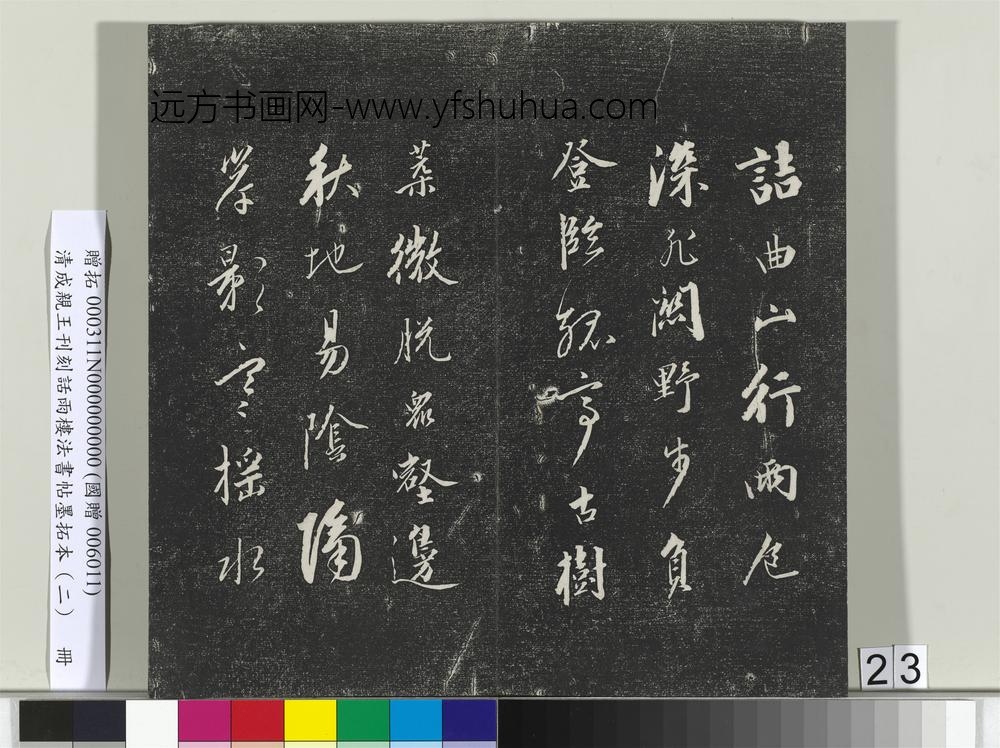 远方书画网-www.yfshuhua.com
詰曲山行兩
深闕野步負
登臨亭古樹
葉微脫眾壑邊
秋地易陰隔
影寒搖水
贈拓 000311N000000000 (國贈 006011)
清成親王刊刻話雨樓法書帖墨拓本 (二) 冊
23